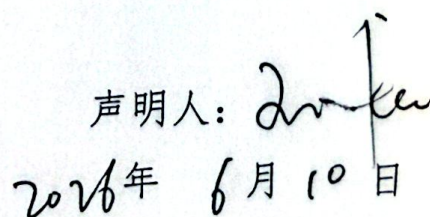 声明人：
2026年 6月10日